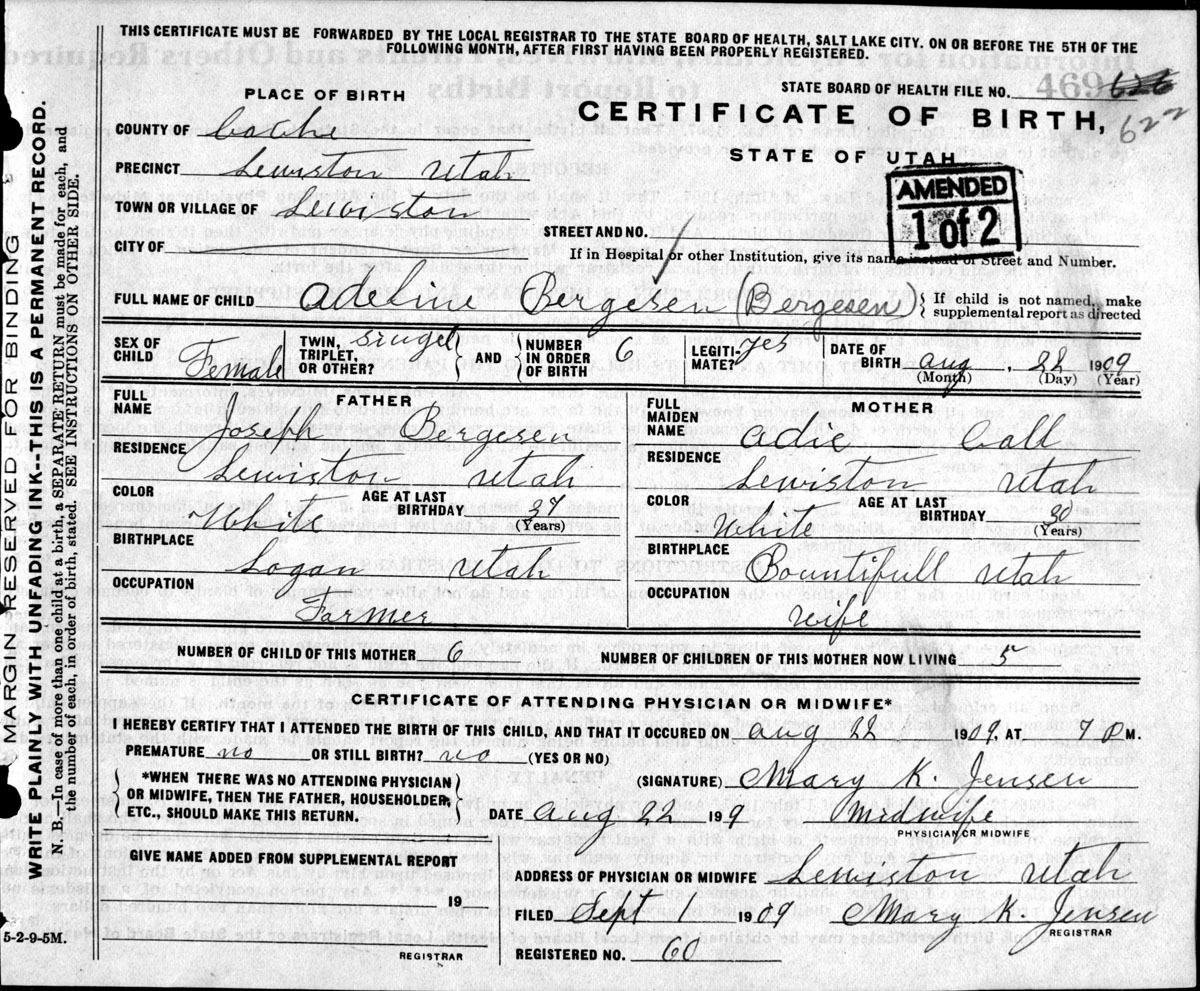 THIS CERTIFICATE MUST BE FORWARDED BY THE LOCAL REGISTRAR TO THE STATE BOARD OF HEALTH, SALT LAKE CITY. ON OR BEFORE THE 5TH OF THE
FOLLOWING MONTH, AFTER FIRST HAVING BEEN PROPERLY REGISTERED.
STATE BOARD OF HEALTH FILE NO. 469 626
622
PLACE OF BIRTH
CERTIFICATE OF BIRTH,
STATE OF UTAH
AMENDED
1 of 2
COUNTY OF Cache
PRECINCT Lewiston Utah
TOWN OR VILLAGE OF Lewiston
STREET AND NO.
CITY OF
If in Hospital or other Institution, give its name instead of Street and Number.
FULL NAME OF CHILD Adeline Bergesen (Bergesen) { If child is not named, make
supplemental report as directed
SEX OF CHILD Female
TWIN, TRIPLET, OR OTHER? Singel } AND { NUMBER IN ORDER OF BIRTH 6
LEGITIMATE? yes
DATE OF BIRTH Aug. 22 1909
(Month) (Day) (Year)
FATHER
FULL NAME Joseph Bergesen
RESIDENCE Lewiston Utah
COLOR White AGE AT LAST BIRTHDAY 37 (Years)
BIRTHPLACE Logan Utah
OCCUPATION Farmer
MOTHER
FULL MAIDEN NAME Adie Call
RESIDENCE Lewiston Utah
COLOR White AGE AT LAST BIRTHDAY 30 (Years)
BIRTHPLACE Bountifull Utah
OCCUPATION wife
NUMBER OF CHILD OF THIS MOTHER 6 NUMBER OF CHILDREN OF THIS MOTHER NOW LIVING 5
CERTIFICATE OF ATTENDING PHYSICIAN OR MIDWIFE*
I HEREBY CERTIFY THAT I ATTENDED THE BIRTH OF THIS CHILD, AND THAT IT OCCURED ON Aug 22 1909, AT 7 P M.
PREMATURE no OR STILL BIRTH? no (YES OR NO)
{ *WHEN THERE WAS NO ATTENDING PHYSICIAN
OR MIDWIFE, THEN THE FATHER, HOUSEHOLDER,
ETC., SHOULD MAKE THIS RETURN. }
(SIGNATURE) Mary K. Jensen
DATE Aug 22 199 Midwife
PHYSICIAN OR MIDWIFE
GIVE NAME ADDED FROM SUPPLEMENTAL REPORT
19
REGISTRAR
ADDRESS OF PHYSICIAN OR MIDWIFE Lewiston Utah
FILED Sept 1 1909 Mary K. Jensen
REGISTRAR
REGISTERED NO. 60
MARGIN RESERVED FOR BINDING
WRITE PLAINLY WITH UNFADING INK--THIS IS A PERMANENT RECORD.
N. B.—In case of more than one child at a birth, a SEPARATE RETURN must be made for each, and
the number of each, in order of birth, stated. SEE INSTRUCTIONS ON OTHER SIDE.
5-2-9-5M.